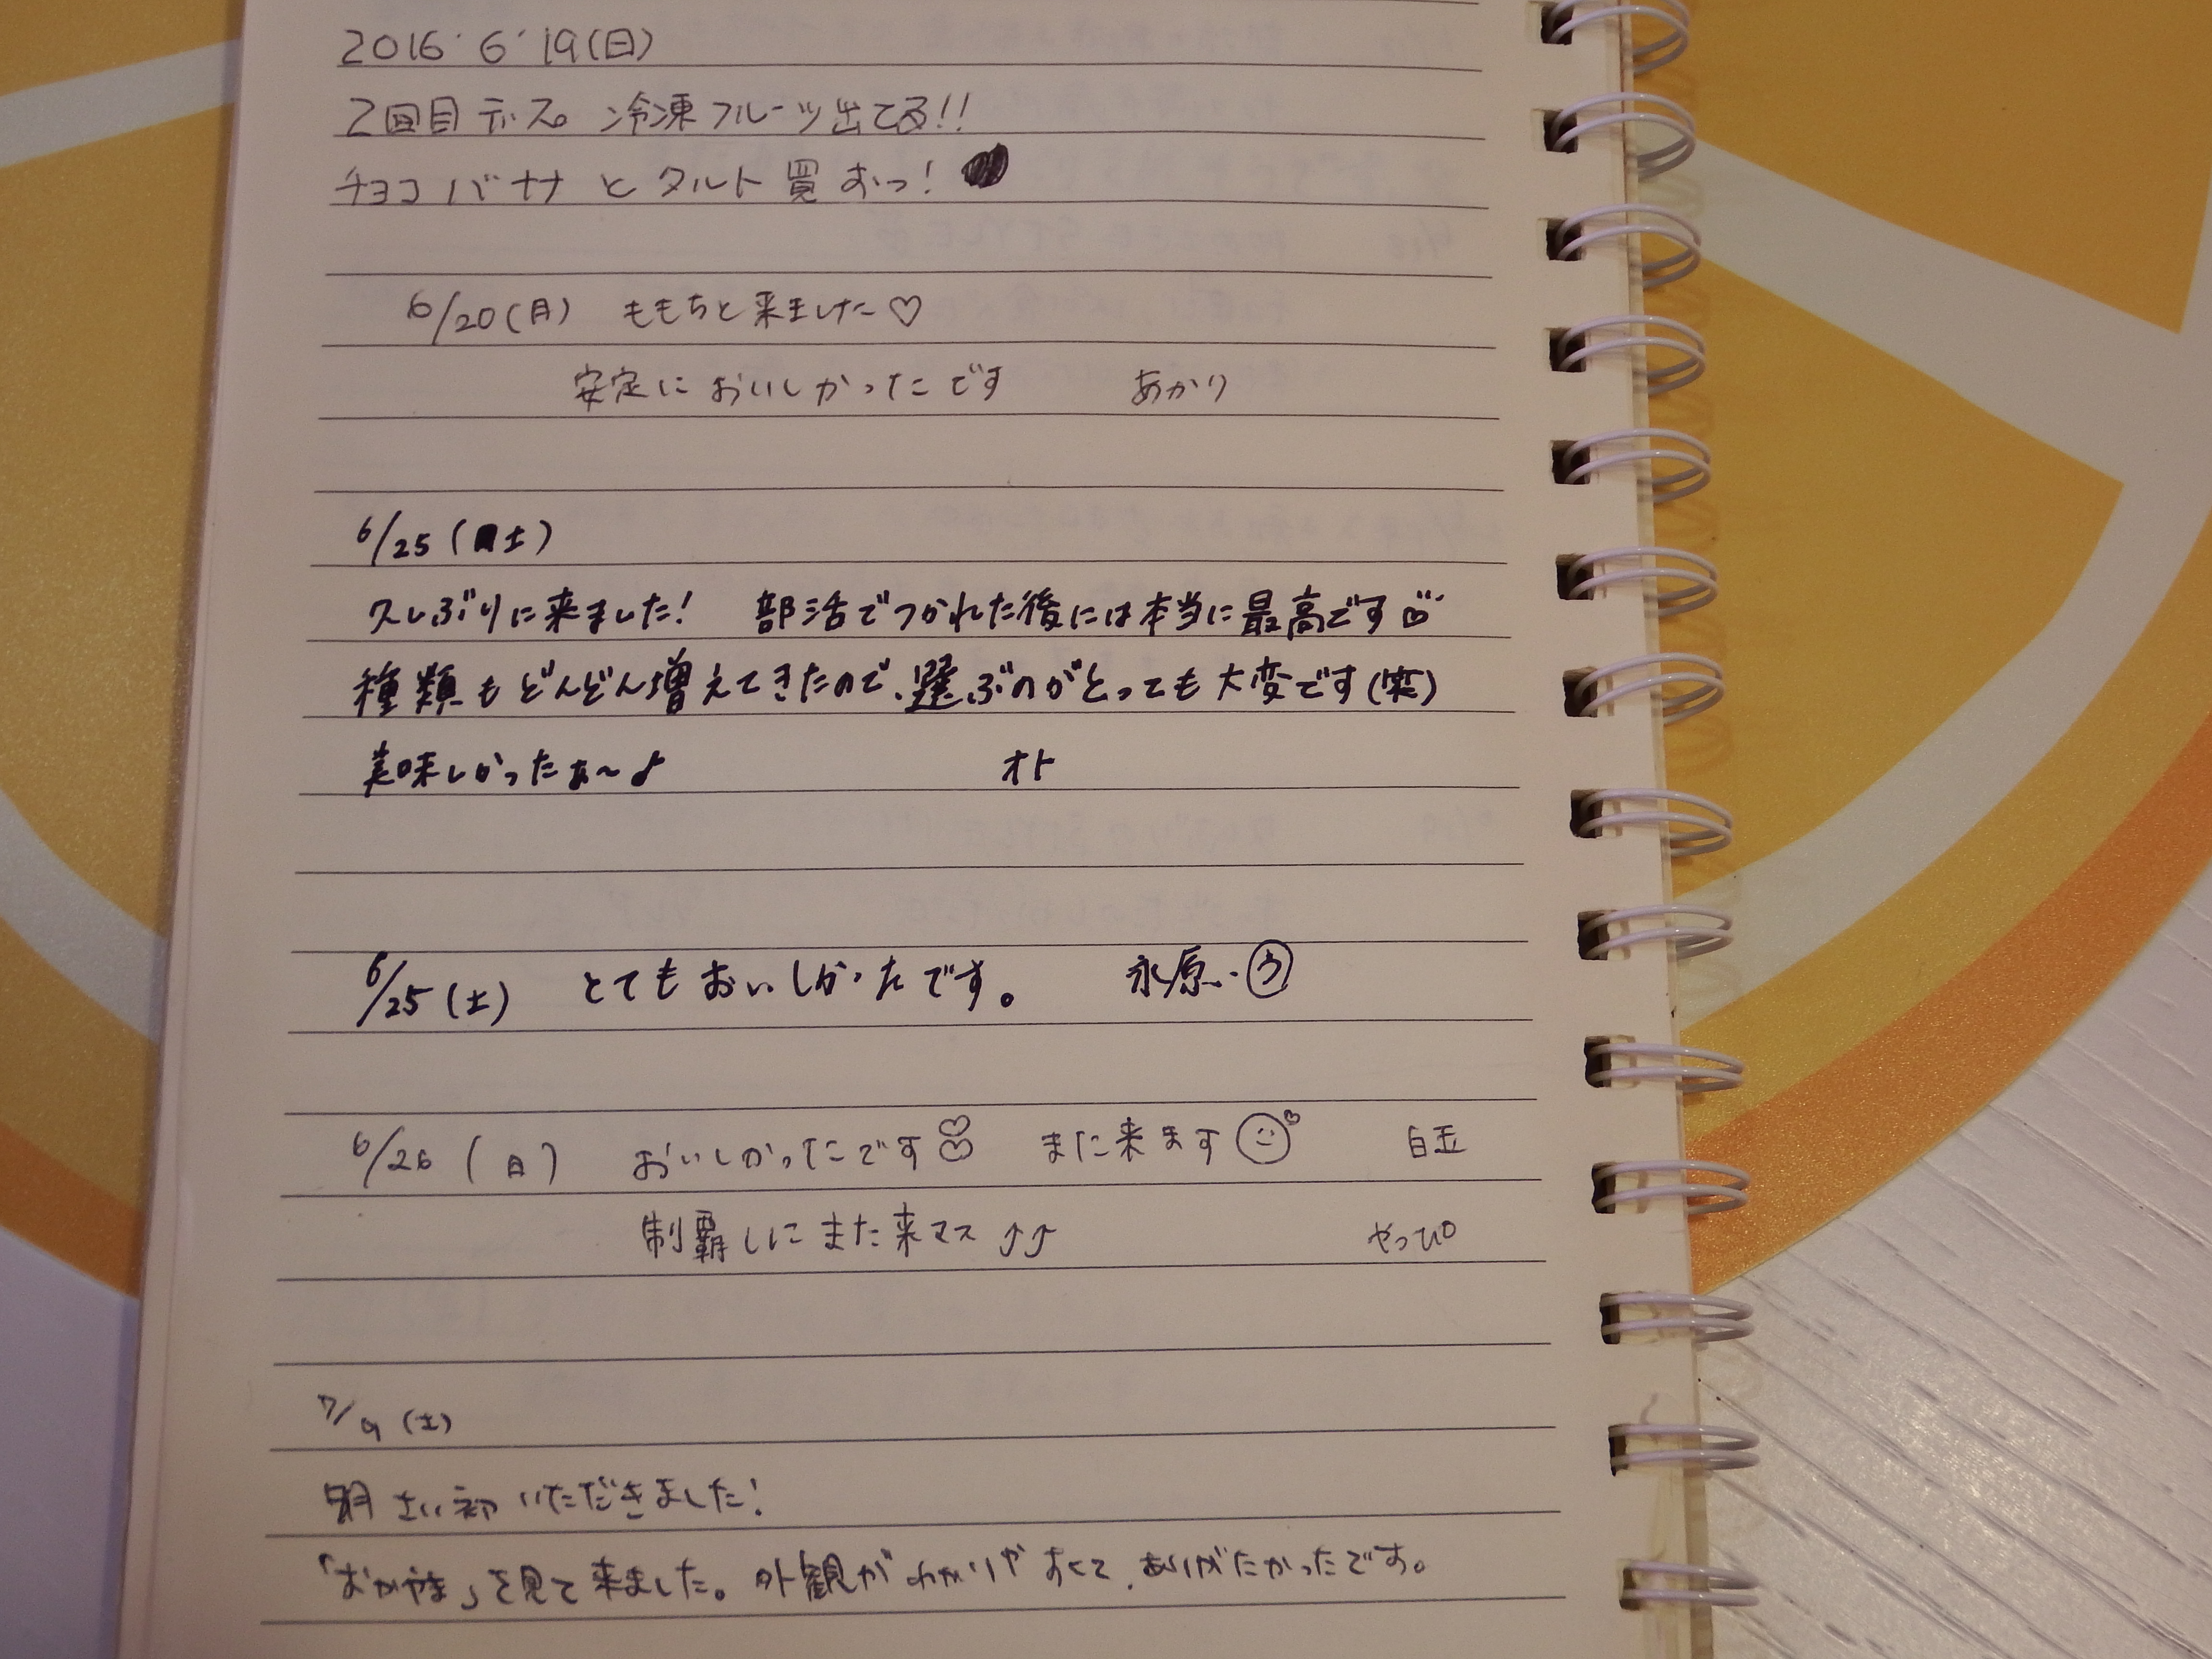 2016・6・19(日)
2回目デス。冷凍フルーツ出てる!!
チョコバナナとタルト買おっ!
6/20(月) ももちと来ました♡
安定においしかったです あかり
6/25(土)
久しぶりに来ました! 部活でつかれた後には本当に最高です
種類もどんどん増えてきたので、選ぶのがとっても大変です(笑)
美味しかったぁ〜♪ オト
6/25(土) とてもおいしかったです。 永原・㋒
6/26(日) おいしかったです♡ また来ます 白玉
制覇しにまた来マス♪♪ やっぴ
7/9(土)
初いただきました!
「おかやま」を見て来ました。外観がわかりやすくて、ありがたかったです。